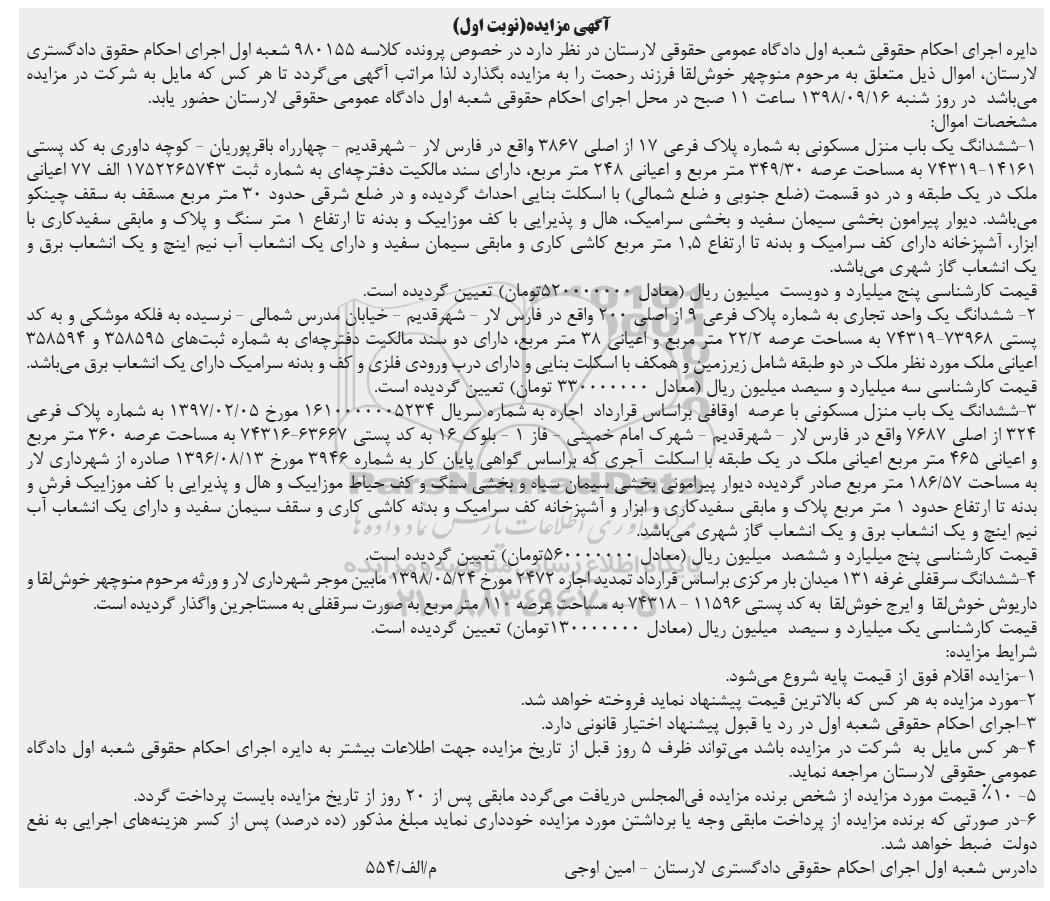 آگهی مزایده(نوبت اول)
دایره اجرای احکام حقوقی شعبه اول دادگاه عمومی حقوقی لارستان در نظر دارد در خصوص پرونده کلاسه ۹۸۰۱۵۵ شعبه اول اجرای احکام حقوق دادگستری
لارستان، اموال ذیل متعلق به مرحوم منوچهر خوش‌لقا فرزند رحمت را به مزایده بگذارد لذا مراتب آگهی می‌گردد تا هر کس که مایل به شرکت در مزایده
می‌باشد در روز شنبه ۱۳۹۸/۰۹/۱۶ ساعت ۱۱ صبح در محل اجرای احکام حقوقی شعبه اول دادگاه عمومی حقوقی لارستان حضور یابد.
مشخصات اموال:
۱-ششدانگ یک باب منزل مسکونی به شماره پلاک فرعی ۱۷ از اصلی ۳۸۶۷ واقع در فارس لار - شهرقدیم - چهارراه باقرپوریان - کوچه داوری به کد پستی
۷۴۳۱۹-۱۴۱۶۱ به مساحت عرصه ۳۴۹/۳۰ متر مربع و اعیانی ۲۴۸ متر مربع، دارای سند مالکیت دفترچه‌ای به شماره ثبت ۱۷۵۲۲۶۵۷۴۳ الف ۷۷ اعیانی
ملک در یک طبقه و در دو قسمت (ضلع جنوبی و ضلع شمالی) با اسکلت بنایی احداث گردیده و در ضلع شرقی حدود ۳۰ متر مربع مسقف به سقف چینکو
می‌باشد. دیوار پیرامون بخشی سیمان سفید و بخشی سرامیک، هال و پذیرایی با کف موزاییک و بدنه تا ارتفاع ۱ متر سنگ و پلاک و مابقی سفیدکاری با
ابزار، آشپزخانه دارای کف سرامیک و بدنه تا ارتفاع ۱,۵ متر مربع کاشی کاری و مابقی سیمان سفید و دارای یک انشعاب آب نیم اینچ و یک انشعاب برق و
یک انشعاب گاز شهری می‌باشد.
قیمت کارشناسی پنج میلیارد و دویست میلیون ریال (معادل ۵۲۰۰۰۰۰۰۰تومان) تعیین گردیده است.
۲- ششدانگ یک واحد تجاری به شماره پلاک فرعی ۹ از اصلی ۲۰۰ واقع در فارس لار - شهرقدیم - خیابان مدرس شمالی - نرسیده به فلکه موشکی و به کد
پستی ۷۳۹۶۸-۷۴۳۱۹ به مساحت عرصه ۲۲/۲ متر مربع و اعیانی ۳۸ متر مربع، دارای دو سند مالکیت دفترچه‌ای به شماره ثبت‌های ۳۵۸۵۹۵ و ۳۵۸۵۹۴
اعیانی ملک مورد نظر ملک در دو طبقه شامل زیرزمین و همکف با اسکلت بنایی و دارای درب ورودی فلزی و کف و بدنه سرامیک دارای یک انشعاب برق می‌باشد.
قیمت کارشناسی سه میلیارد و سیصد میلیون ریال (معادل ۳۳۰۰۰۰۰۰۰ تومان) تعیین گردیده است.
۳-ششدانگ یک باب منزل مسکونی با عرصه اوقافی براساس قرارداد اجاره به شماره سریال ۱۶۱۰۰۰۰۰۰۵۲۳۴ مورخ ۱۳۹۷/۰۲/۰۵ به شماره پلاک فرعی
۳۲۴ از اصلی ۷۶۸۷ واقع در فارس لار - شهرقدیم - شهرک امام خمینی - فاز ۱ - بلوک ۱۶ به کد پستی ۶۳۶۶۷-۷۴۳۱۶ به مساحت عرصه ۳۶۰ متر مربع
و اعیانی ۴۶۵ متر مربع اعیانی ملک در یک طبقه با اسکلت آجری که براساس گواهی پایان کار به شماره ۳۹۴۶ مورخ ۱۳۹۶/۰۸/۱۳ صادره از شهرداری لار
به مساحت ۱۸۶/۵۷ متر مربع صادر گردیده دیوار پیرامونی بخشی سیمان سیاه و بخشی سنگ و کف حیاط موزاییک و هال و پذیرایی با کف موزاییک فرش و
بدنه تا ارتفاع حدود ۱ متر مربع پلاک و مابقی سفیدکاری و ابزار و آشپزخانه کف سرامیک و بدنه کاشی کاری و سقف سیمان سفید و دارای یک انشعاب آب
نیم اینچ و یک انشعاب برق و یک انشعاب گاز شهری می‌باشد.
قیمت کارشناسی پنج میلیارد و ششصد میلیون ریال (معادل ۵۶۰۰۰۰۰۰۰تومان) تعیین گردیده است.
۴-ششدانگ سرقفلی غرفه ۱۳۱ میدان بار مرکزی براساس قرارداد تمدید اجاره ۲۴۷۲ مورخ ۱۳۹۸/۰۵/۲۴ مابین موجر شهرداری لار و ورثه مرحوم منوچهر خوش‌لقا و
داریوش خوش‌لقا و ایرج خوش‌لقا به کد پستی ۱۱۵۹۶ - ۷۴۳۱۸ به مساحت عرصه ۱۱۰ متر مربع به صورت سرقفلی به مستاجرین واگذار گردیده است.
قیمت کارشناسی یک میلیارد و سیصد میلیون ریال (معادل ۱۳۰۰۰۰۰۰۰تومان) تعیین گردیده است.
شرایط مزایده:
۱-مزایده اقلام فوق از قیمت پایه شروع می‌شود.
۲-مورد مزایده به هر کس که بالاترین قیمت پیشنهاد نماید فروخته خواهد شد.
۳-اجرای احکام حقوقی شعبه اول در رد یا قبول پیشنهاد اختیار قانونی دارد.
۴-هر کس مایل به شرکت در مزایده باشد می‌تواند ظرف ۵ روز قبل از تاریخ مزایده جهت اطلاعات بیشتر به دایره اجرای احکام حقوقی شعبه اول دادگاه
عمومی حقوقی لارستان مراجعه نماید.
۵- ۱۰٪ قیمت مورد مزایده از شخص برنده مزایده فی‌المجلس دریافت می‌گردد مابقی پس از ۲۰ روز از تاریخ مزایده بایست پرداخت گردد.
۶-در صورتی که برنده مزایده از پرداخت مابقی وجه یا برداشتن مورد مزایده خودداری نماید مبلغ مذکور (ده درصد) پس از کسر هزینه‌های اجرایی به نفع
دولت ضبط خواهد شد.
دادرس شعبه اول اجرای احکام حقوقی دادگستری لارستان - امین اوجی م/الف/۵۵۴
ParsNamadData
مرکز فرآوری اطلاعات پارس نماد داده ها
پایگاه اطلاع رسانی مناقصه و مزایده
۰۲۱-۸۸۳۴۹۶۷۰-۵